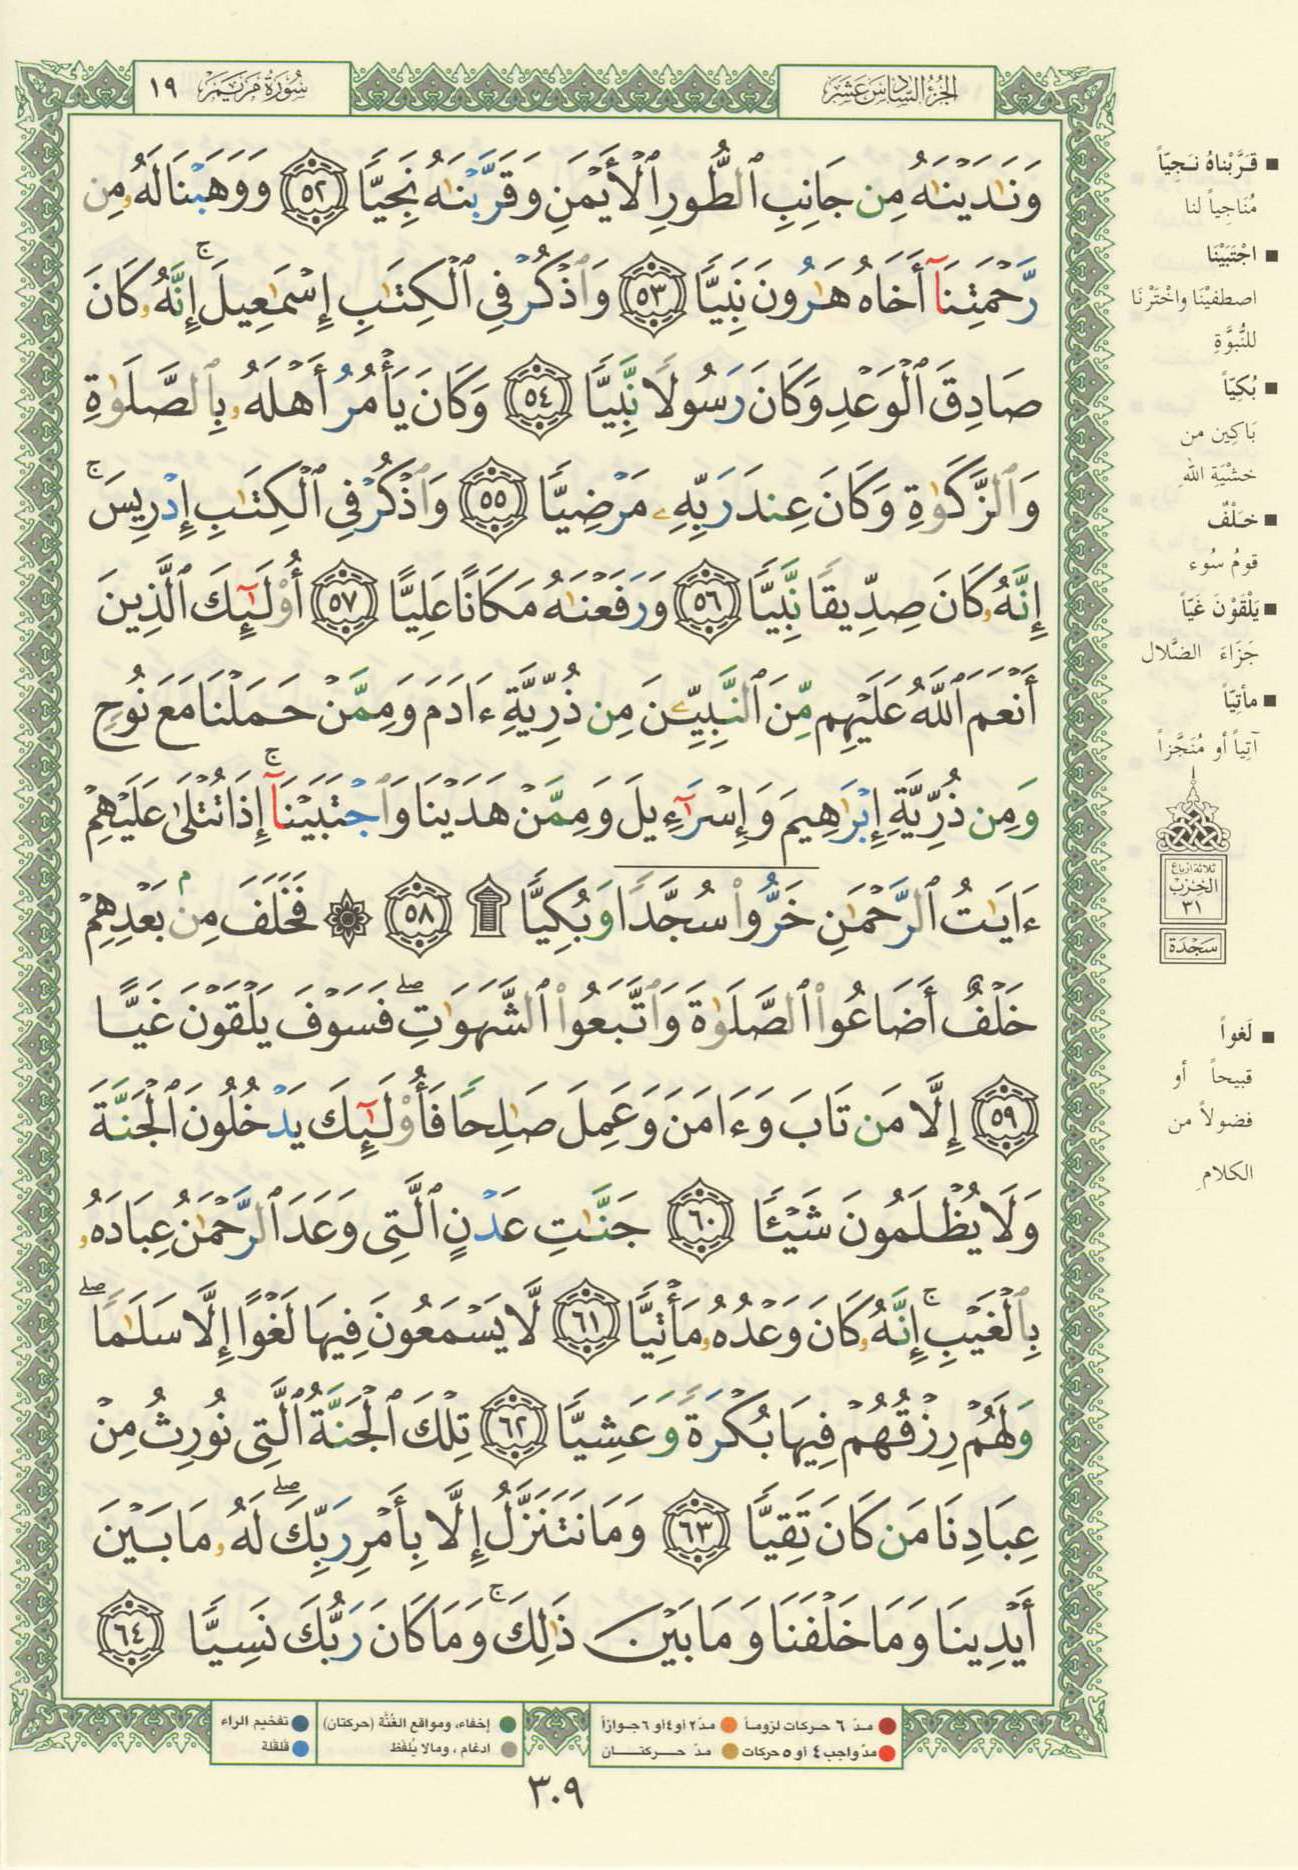 الجزء السادس عشر
سورة مريم ١٩
وَنَٰدَيْنَٰهُ مِن جَانِبِ ٱلطُّورِ ٱلْأَيْمَنِ وَقَرَّبْنَٰهُ نَجِيًّا ٥٢ وَوَهَبْنَا لَهُۥ مِن
رَّحْمَتِنَآ أَخَاهُ هَٰرُونَ نَبِيًّا ٥٣ وَٱذْكُرْ فِي ٱلْكِتَٰبِ إِسْمَٰعِيلَ ۚ إِنَّهُۥ كَانَ
صَادِقَ ٱلْوَعْدِ وَكَانَ رَسُولًا نَّبِيًّا ٥٤ وَكَانَ يَأْمُرُ أَهْلَهُۥ بِٱلصَّلَوٰةِ
وَٱلزَّكَوٰةِ وَكَانَ عِندَ رَبِّهِۦ مَرْضِيًّا ٥٥ وَٱذْكُرْ فِي ٱلْكِتَٰبِ إِدْرِيسَ ۚ
إِنَّهُۥ كَانَ صِدِّيقًا نَّبِيًّا ٥٦ وَرَفَعْنَٰهُ مَكَانًا عَلِيًّا ٥٧ أُو۟لَٰٓئِكَ ٱلَّذِينَ
أَنْعَمَ ٱللَّهُ عَلَيْهِم مِّنَ ٱلنَّبِيِّۦنَ مِن ذُرِّيَّةِ ءَادَمَ وَمِمَّنْ حَمَلْنَا مَعَ نُوحٍ
وَمِن ذُرِّيَّةِ إِبْرَٰهِيمَ وَإِسْرَٰٓءِيلَ وَمِمَّنْ هَدَيْنَا وَٱجْتَبَيْنَآ ۚ إِذَا تُتْلَىٰ عَلَيْهِمْ
ءَايَٰتُ ٱلرَّحْمَٰنِ خَرُّوا۟ سُجَّدًا وَبُكِيًّا ۩ ٥٨ ۞ فَخَلَفَ مِنۢ بَعْدِهِمْ
خَلْفٌ أَضَاعُوا۟ ٱلصَّلَوٰةَ وَٱتَّبَعُوا۟ ٱلشَّهَوَٰتِ ۖ فَسَوْفَ يَلْقَوْنَ غَيًّا
٥٩ إِلَّا مَن تَابَ وَءَامَنَ وَعَمِلَ صَٰلِحًا فَأُو۟لَٰٓئِكَ يَدْخُلُونَ ٱلْجَنَّةَ
وَلَا يُظْلَمُونَ شَيْـًٔا ٦٠ جَنَّٰتِ عَدْنٍ ٱلَّتِي وَعَدَ ٱلرَّحْمَٰنُ عِبَادَهُۥ
بِٱلْغَيْبِ ۚ إِنَّهُۥ كَانَ وَعْدُهُۥ مَأْتِيًّا ٦١ لَّا يَسْمَعُونَ فِيهَا لَغْوًا إِلَّا سَلَٰمًا ۖ
وَلَهُمْ رِزْقُهُمْ فِيهَا بُكْرَةً وَعَشِيًّا ٦٢ تِلْكَ ٱلْجَنَّةُ ٱلَّتِي نُورِثُ مِنْ
عِبَادِنَا مَن كَانَ تَقِيًّا ٦٣ وَمَا نَتَنَزَّلُ إِلَّا بِأَمْرِ رَبِّكَ ۖ لَهُۥ مَا بَيْنَ
أَيْدِينَا وَمَا خَلْفَنَا وَمَا بَيْنَ ذَٰلِكَ ۚ وَمَا كَانَ رَبُّكَ نَسِيًّا ٦٤
■ قَرَّبْناهُ نَجِيّاً
مُنَاجِياً لنا
■ اجْتَبَيْنَا
اصطفَيْنَا واخْتَرْنَا
للنُّبوَّةِ
■ بُكِيّاً
بَاكِين من
خشْيَةِ الله
■ خَلْفٌ
قومُ سُوء
■ يَلْقَوْنَ غَيّاً
جَزَاءَ الضَّلال
■ مأتِيّاً
آتِياً أو مُنَجَّزاً
ثلاثة أرباع
الحزب
٣١
سجدة
■ لَغواً
قبيحاً أو
فضولاً من
الكلامِ
مدّ ٦ حركات لزوماً
مدّ ٢ أو ٤ أو ٦ جوازاً
إخفاء، ومواقع الغُنَّة (حركتان)
تفخيم الراء
مدّ واجب ٤ أو ٥ حركات
مدّ حركتــان
ادغام، ومالا يُلفظ
قلقلة
٣٠٩